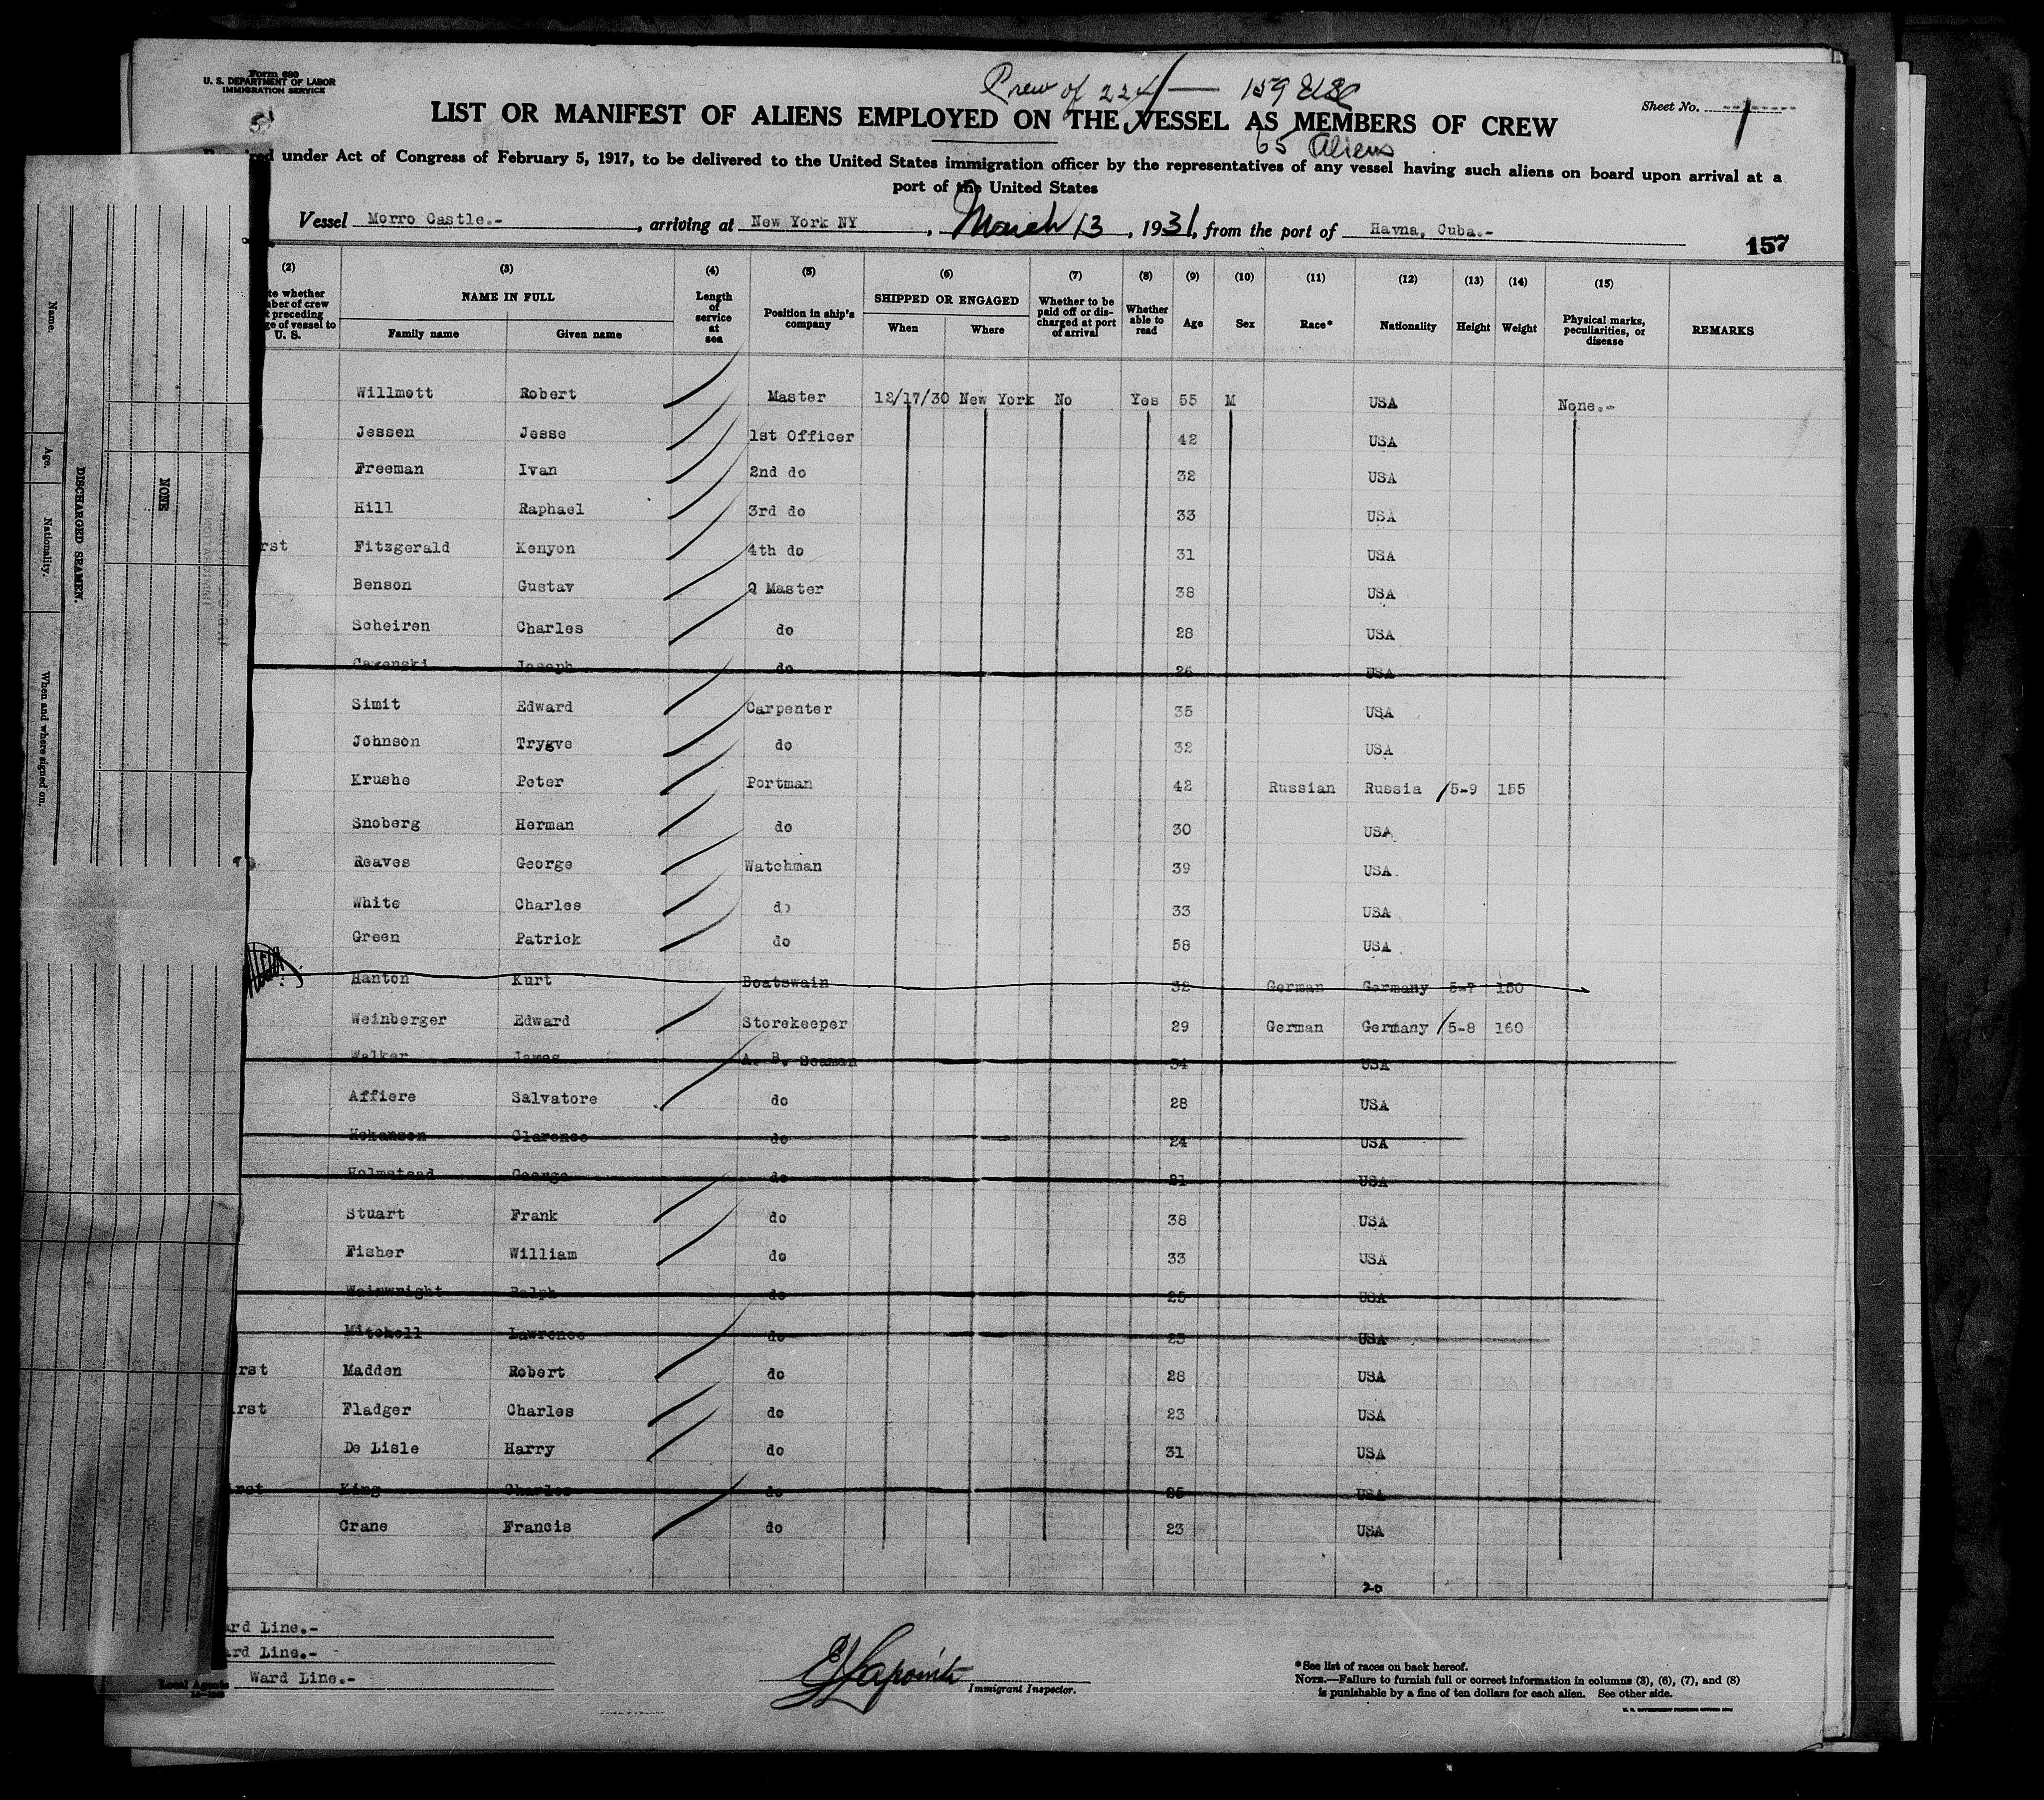 Form 680
U. S. DEPARTMENT OF LABOR
IMMIGRATION SERVICE
Crew of 224 — 159 USC
Sheet No. 1
LIST OR MANIFEST OF ALIENS EMPLOYED ON THE VESSEL AS MEMBERS OF CREW
65 Aliens
under Act of Congress of February 5, 1917, to be delivered to the United States immigration officer by the representatives of any vessel having such aliens on board upon arrival at a
port of the United States
Vessel Morro Castle.- , arriving at New York NY , March 13 , 1931, from the port of Havna, Cuba.-
157
(2) (3) (4) (5) (6) (7) (8) (9) (10) (11) (12) (13) (14) (15)
whether
of crew
preceding
of vessel to
U. S.
NAME IN FULL
Family name Given name
Length of service at sea
Position in ship's company
SHIPPED OR ENGAGED
When Where
Whether to be paid off or discharged at port of arrival
Whether able to read
Age Sex Race* Nationality Height Weight
Physical marks, peculiarities, or disease
REMARKS
Willmott Robert Master 12/17/30 New York No Yes 55 M USA None.-
Jessen Jesse 1st Officer 42 USA
Freeman Ivan 2nd do 32 USA
Hill Raphael 3rd do 33 USA
rst Fitzgerald Kenyon 4th do 31 USA
Benson Gustav Q Master 38 USA
Scheiren Charles do 28 USA
Joseph do 26 USA
Simit Edward Carpenter 35 USA
Johnson Trygve do 32 USA
Krushe Peter Portman 42 Russian Russia 5-9 155
Snoberg Herman do 30 USA
Reaves George Watchman 39 USA
White Charles do 33 USA
Green Patrick do 58 USA
Hanton Kurt Boatswain 32 German Germany 5-7 150
Weinberger Edward Storekeeper 29 German Germany 5-8 160
Walker James A. B. Seaman 34 USA
Affiere Salvatore do 28 USA
Clarence do 24 USA
Holmstead George do 21 USA
Stuart Frank do 38 USA
Fisher William do 33 USA
Wainwright Ralph do 25 USA
Mitchell Lawrence do 23 USA
rst Madden Robert do 28 USA
irst Fladger Charles do 23 USA
De Lisle Harry do 31 USA
irst King Charles do 25 USA
Crane Francis do 23 USA
20
ard Line.-
ard Line.-
Local Agents Ward Line.-
Immigrant Inspector.
*See list of races on back hereof.
NOTE.—Failure to furnish full or correct information in columns (3), (6), (7), and (8)
is punishable by a fine of ten dollars for each alien. See other side.
Name.
Age.
Nationality.
When and where signed on.
DISCHARGED SEAMEN.
NONE